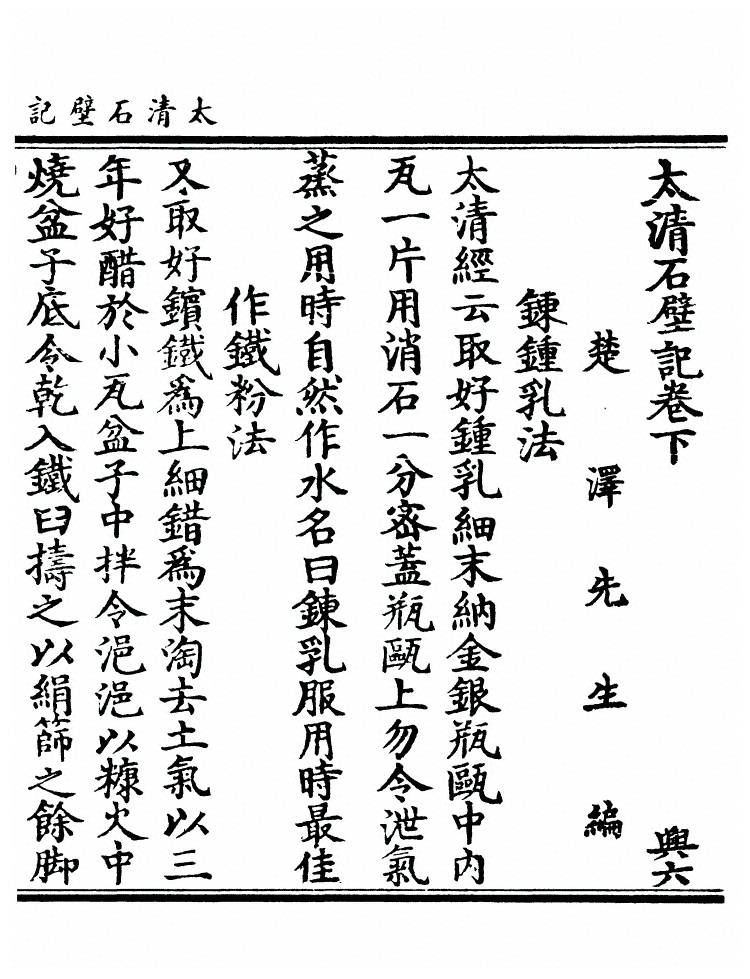 太清石壁記
太清石壁記卷下 興六
楚澤先生編
鍊鍾乳法
太清經云取好鍾乳細末納金銀瓶甌中內
瓦一片用消石一分密蓋瓶甌上勿令泄氣
蒸之用時自然作水名曰鍊乳服用時最佳
作鐵粉法
又取好鑌鐵爲上細錯爲末淘去土氣以三
年好醋於小瓦盆子中拌令浥浥以糠火中
燒盆子底令乾入鐵臼擣之以絹篩之餘脚